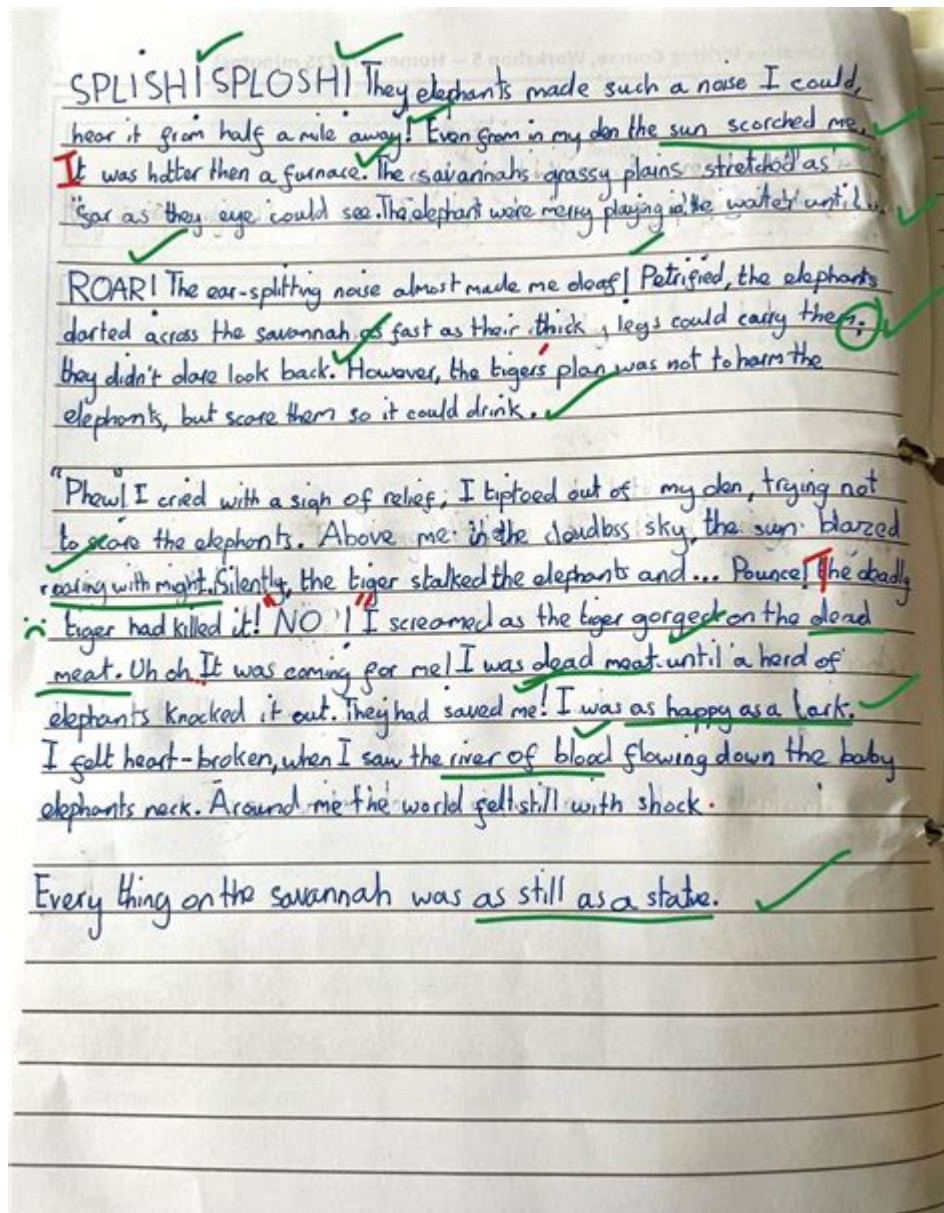 SPLISH! SPLOSH! They elephants made such a noise I could,
hear it from half a mile away! Even from in my den the sun scorched me.
It was hotter then a furnace. The savannahs grassy plains stretched as
far as they eye could see. The elephant were merry playing in the water until...
ROAR! The ear-splitting noise almost made me deaf! Petrified, the elephants
darted across the savannah as fast as their thick, legs could carry them;
they didn't dare look back. However, the tiger's plan was not to harm the
elephants, but scare them so it could drink.
"Phew"! I cried with a sigh of relief, I tiptoed out of my den, trying not
to scare the elephants. Above me in the cloudless sky, the sun blazed
roaring with might. Silently, the tiger stalked the elephants and... Pounce! The deadly
tiger had killed it! "NO"!! I screamed as the tiger gorged on the dead
meat. Uh oh... It was coming for me! I was dead meat until a herd of
elephants knocked it out. They had saved me! I was as happy as a lark.
I felt heart-broken, when I saw the river of blood flowing down the baby
elephants neck. Around me the world felt still with shock.
Every thing on the savannah was as still as a statue.